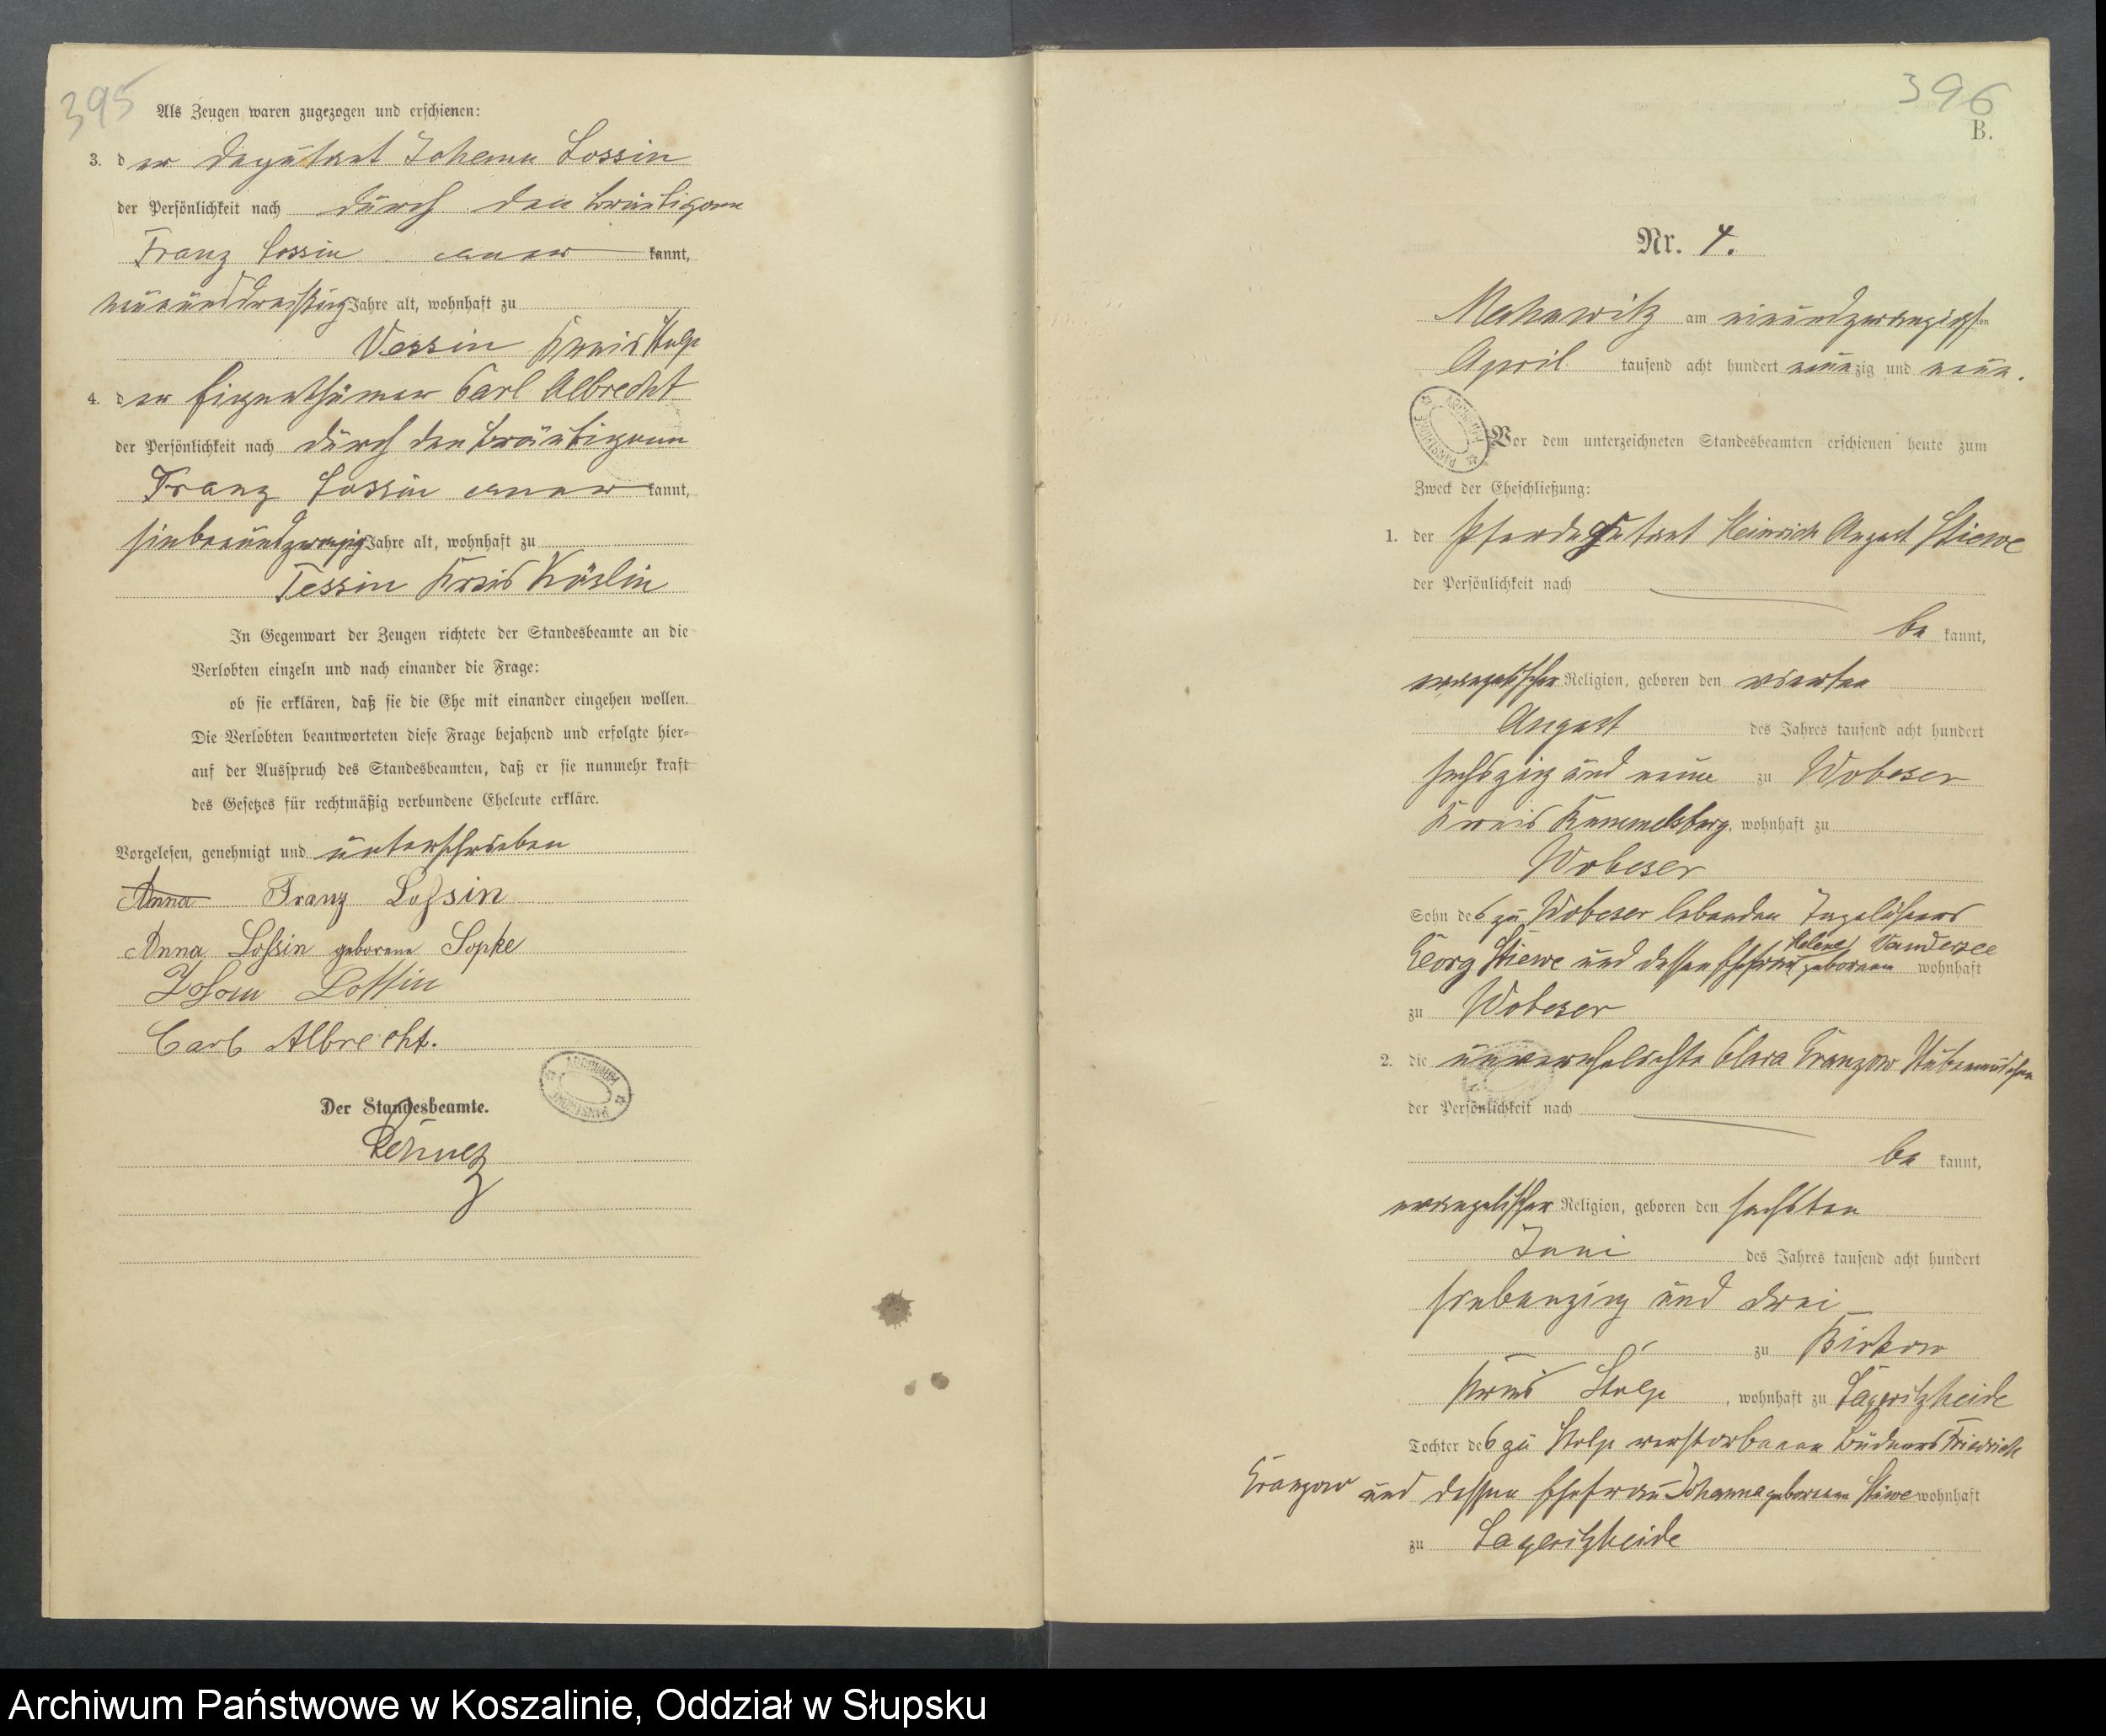 395
Als Zeugen waren zugezogen und erschienen:
3. der Deputant Johann Lossin
der Persönlichkeit nach durch den Bräutigam
Franz Lossin aner kannt,
neununddreißig Jahre alt, wohnhaft zu
Vessin Kreis Stolp
4. der Eigenthümer Carl Albrecht
der Persönlichkeit nach durch den Bräutigam
Franz Lossin aner kannt,
siebenundzwanzig Jahre alt, wohnhaft zu
Tessin Kreis Köslin
In Gegenwart der Zeugen richtete der Standesbeamte an die
Verlobten einzeln und nach einander die Frage:
ob sie erklären, daß sie die Ehe mit einander eingehen wollen.
Die Verlobten beantworteten diese Frage bejahend und erfolgte hier-
auf der Ausspruch des Standesbeamten, daß er sie nunmehr kraft
des Gesetzes für rechtmäßig verbundene Eheleute erkläre.
Vorgelesen, genehmigt und unterschrieben
Anna Franz Loßsin
Anna Loßsin geborene Sopke
Johan Lossin
Carl Albrecht.
Der Standesbeamte.
396
B.
Nr. 4.
am einundzwanzigsten
April tausend acht hundert neunzig und neun.
Vor dem unterzeichneten Standesbeamten erschienen heute zum
Zweck der Eheschließung:
1. der Heinrich August Stiewe
der Persönlichkeit nach
be kannt,
evangelischer Religion, geboren den vierten
August des Jahres tausend acht hundert
sechszig und neun zu Wobeser
Kreis Rummelsburg, wohnhaft zu
Wobeser
Sohn des zu Wobeser lebenden Tagelöhners
Georg Stiewe und dessen Ehefrau Helene geborenen Vandersee wohnhaft
zu Wobeser
2. die unverehelichte Clara Granzow Stubenmädchen
der Persönlichkeit nach
be kannt,
evangelischer Religion, geboren den sechsten
Juni des Jahres tausend acht hundert
siebenzig und drei
zu Birkow
Kreis Stolp, wohnhaft zu Lageritzheide
Tochter des zu Stolp verstorbenen Büdners Friedrich
Granzow und dessen Ehefrau Johanna geborenen Stiewe wohnhaft
zu Lageritzheide
Archiwum Państwowe w Koszalinie, Oddział w Słupsku